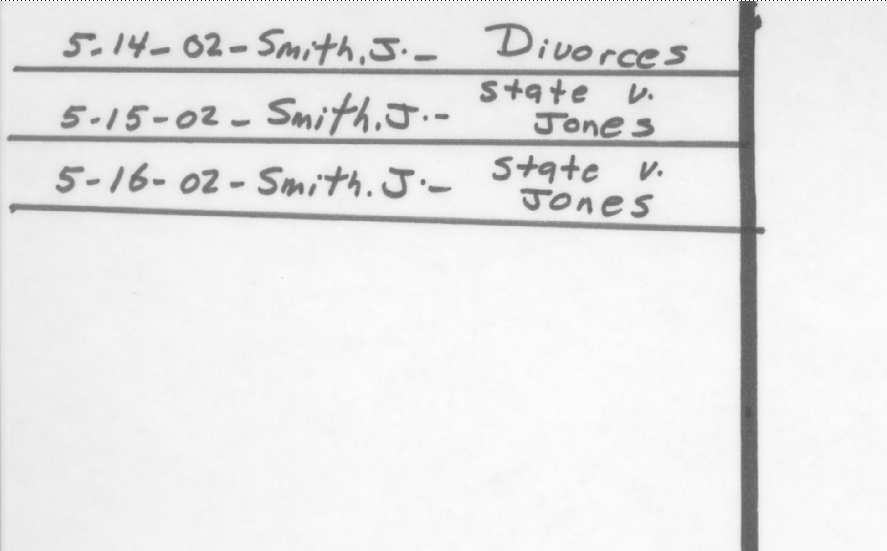 5-14-02-Smith, J.- Divorces
5-15-02-Smith, J.- State v.
Jones
5-16-02-Smith. J.- State v.
Jones